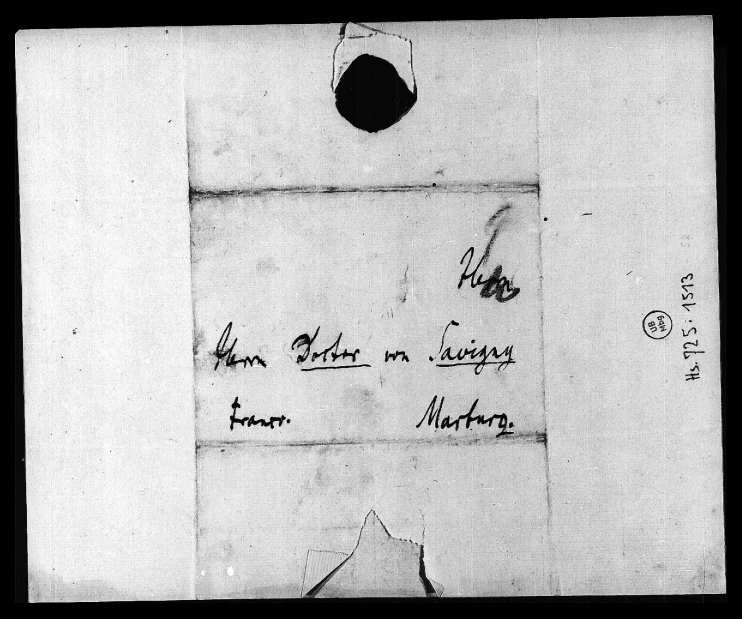 Herrn
Herrn Doctor von Savigny
Franco.
Marburg.
UB
Mbg
Hs. 725: 1513